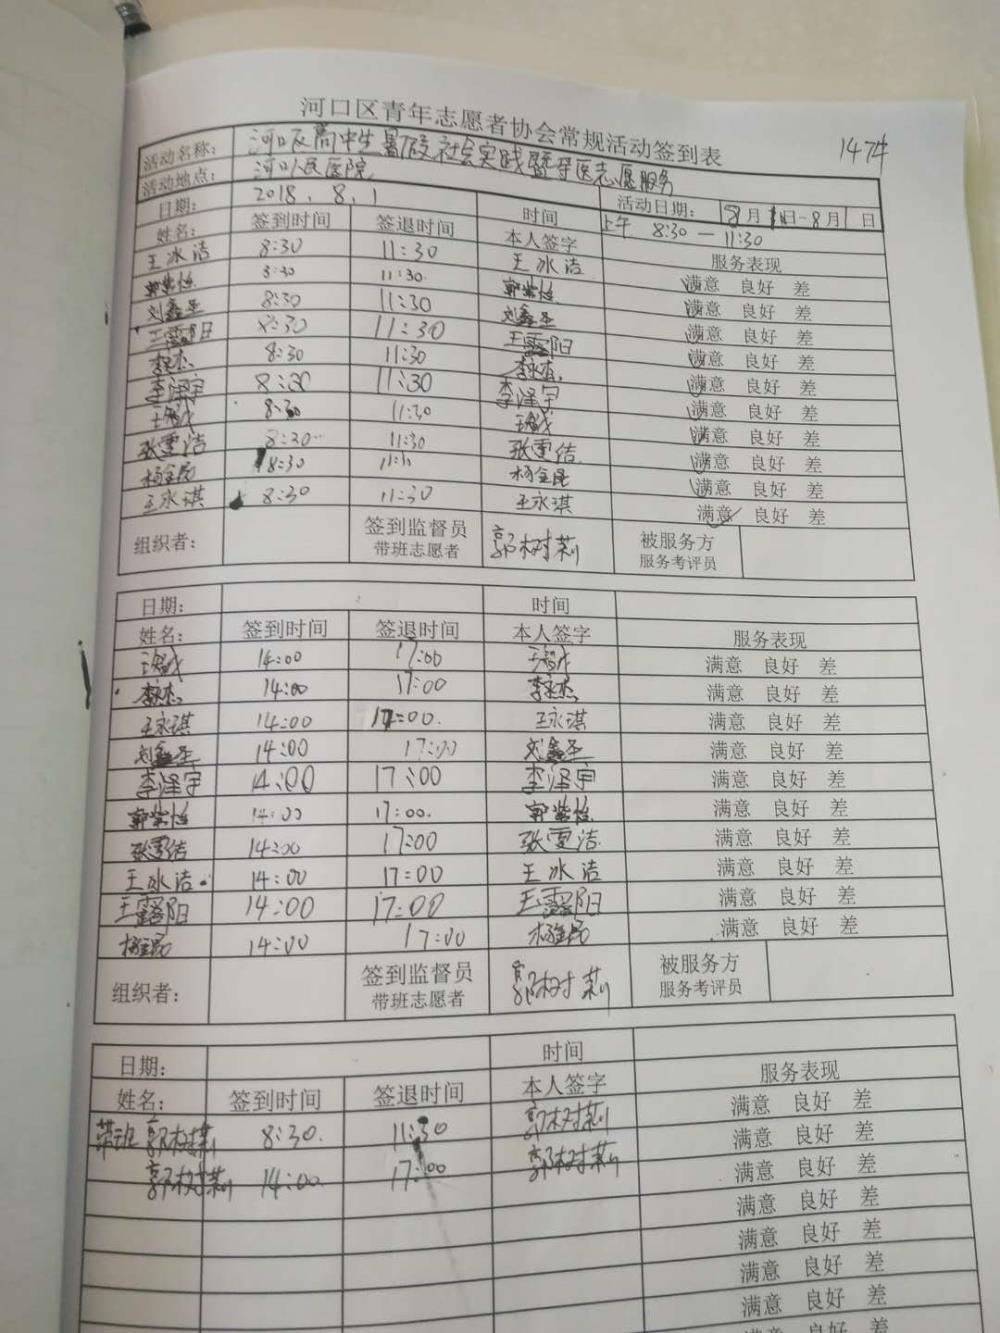 河口区青年志愿者协会常规活动签到表
活动名称: 河口区高中生暑假社会实践暨导医志愿服务
活动地点: 河口人民医院 活动日期: 8月1日-8月1日
日期: 2018.8.1 时间 上午 8:30 — 11:30
姓名: 签到时间 签退时间 本人签字 服务表现
王冰洁 8:30 11:30 王冰洁 满意 良好 差
8:30 11:30 满意 良好 差
刘鑫圣 8:30 11:30 刘鑫圣 满意 良好 差
王露阳 8:30 11:30 王露阳 满意 良好 差
8:30 11:30 满意 良好 差
李泽宇 8:30 11:30 李泽宇 满意 良好 差
8:30 11:30 满意 良好 差
张雪洁 8:30 11:30 张雪洁 满意 良好 差
8:30 满意 良好 差
王永琪 8:30 11:30 王永琪 满意 良好 差
组织者: 签到监督员 带班志愿者 郭树莉 被服务方 服务考评员
日期: 时间
姓名: 签到时间 签退时间 本人签字 服务表现
14:00 17:00 满意 良好 差
14:00 17:00 满意 良好 差
王永琪 14:00 17:00. 王永琪 满意 良好 差
刘鑫圣 14:00 17:00 刘鑫圣 满意 良好 差
李泽宇 14:00 17:00 李泽宇 满意 良好 差
14:00 17:00. 满意 良好 差
张雪洁 14:00 17:00 张雪洁 满意 良好 差
王冰洁 14:00 17:00 王冰洁 满意 良好 差
王露阳 14:00 17:00 王露阳 满意 良好 差
14:00 17:00 满意 良好 差
组织者: 签到监督员 带班志愿者 郭树莉 被服务方 服务考评员
日期: 时间
姓名: 签到时间 签退时间 本人签字 服务表现
带班 郭树莉 8:30. 11:30 郭树莉 满意 良好 差
郭树莉 14:00. 17:00 郭树莉 满意 良好 差
满意 良好 差
满意 良好 差
满意 良好 差
满意 良好 差
满意 良好 差
满意 良好 差